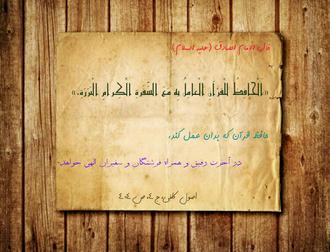 قال الامام الصادق (علیه السلام)
«الْحَافِظُ لِلْقُرْآنِ الْعَامِلُ بِهِ مَعَ السَّفَرَةِ الْكِرَامِ الْبَرَرَةِ.»
حافظ قرآن که بدان عمل کند،
در آخرت رفیق و همراه فرشتگان و سفیران الهی خواهد.
اصول کافی، ج ٤، ص ٤٠٤